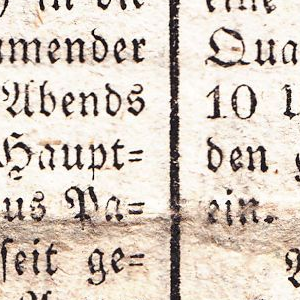 in die
mender
Abends
Haupt=
us Pa=
seit ge=
eine
Qua
10 U
den
ein.